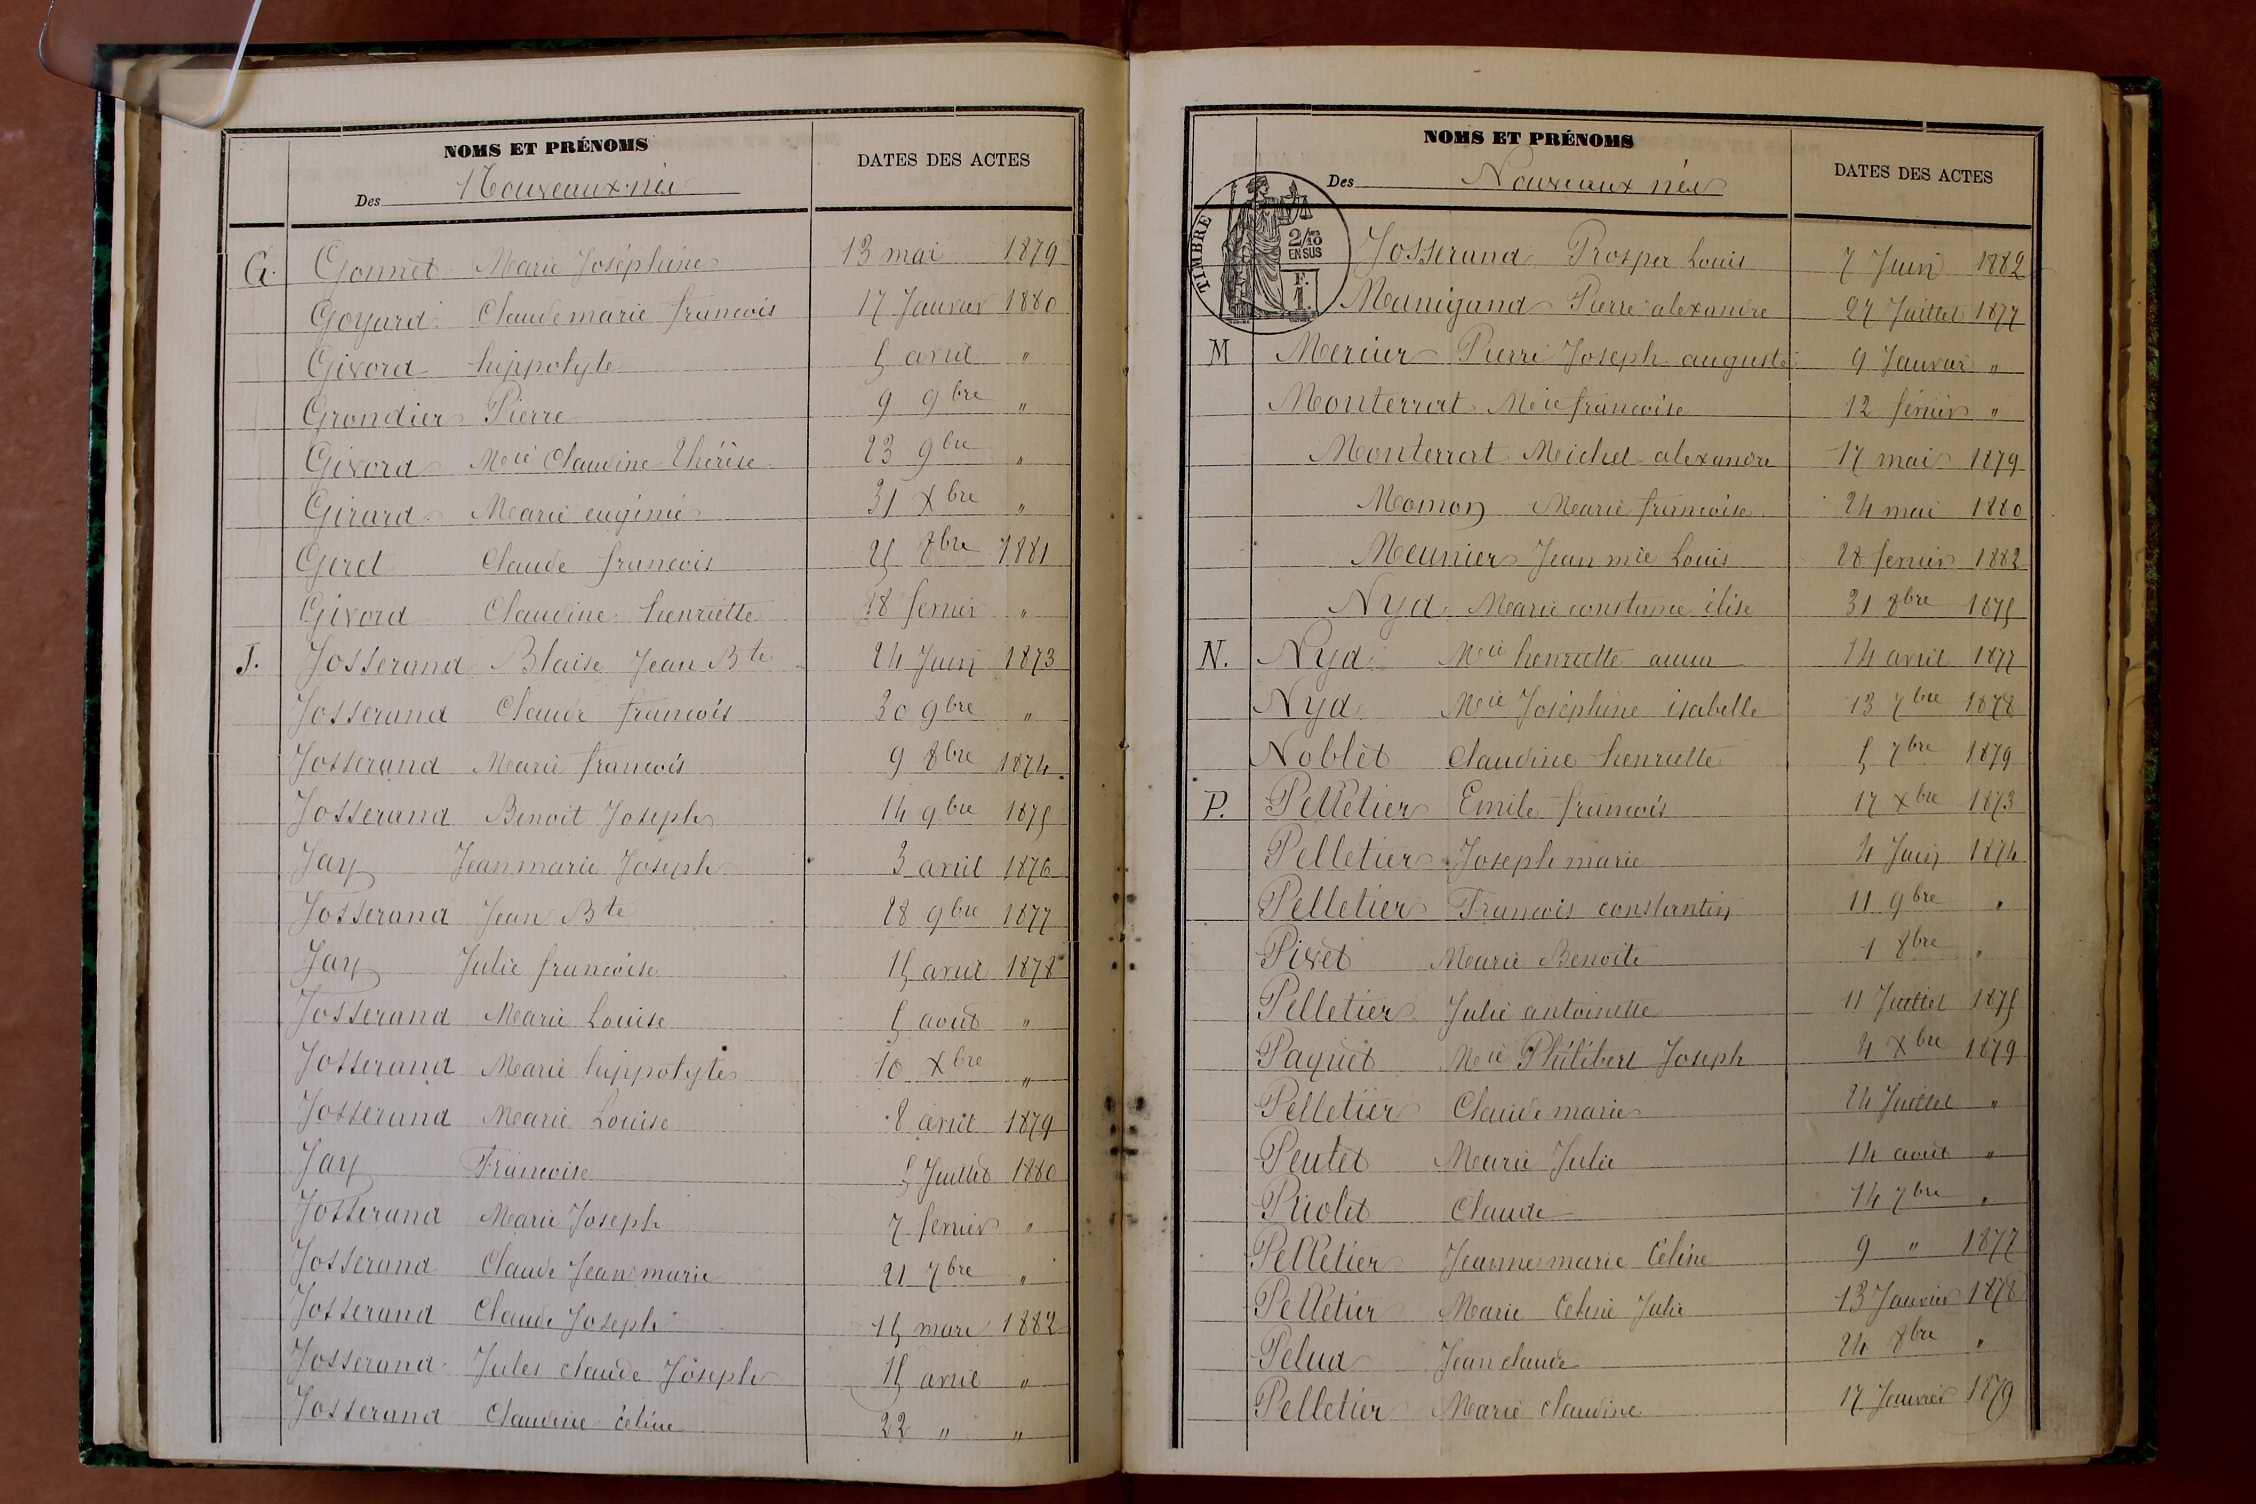 NOMS ET PRÉNOMS
DATES DES ACTES
Des Nouveaux-nés
G. Gonnet Marie Joséphine 13 mai 1879
Goyard Claude marie francois 17 Janvier 1880
Givord hippolyte 5 avril "
Grondier Pierre 9 9bre "
Givord Mcie Claudine Thérèse 23 9bre "
Girard Marie eugénie 31 Xbre "
Geret Claude francois 25 8bre 1881
Givord Claudine henriette 18 fevrier "
J. Josserand Blaise Jean Bte 24 Juin 1873
Josserand Claude francois 30 9bre "
Josserand Marie francois 9 8bre 1874
Josserand Benoit Joseph 14 9bre 1875
Jay Jean marie Joseph 3 avril 1876
Josserand Jean Bte 28 9bre 1877
Jay Julie francoise 15 avril 1878
Josserand Marie Louise 5 août "
Josserand Marie hippolyte 10 Xbre "
Josserand Marie Louise 8 avril 1879
Jay Francoise 5 Juillet 1880
Josserand Marie Joseph 7 fevrier "
Josserand Claude Jean marie 21 7bre "
Josserand Claude Joseph 15 mars 1882
Josserand Jules claude Joseph 15 avril "
Josserand Claudine céline 22 " "
NOMS ET PRÉNOMS
DATES DES ACTES
Des Nouveaux nés
TIMBRE
2/10
EN SUS
F.
1.
Josserand Prosper Louis 7 Juin 1882
Manigand Pierre alexandre 27 Juillet 1877
M Mercier Pierre Joseph auguste 9 Janvier "
Monterrat Mcie francoise 12 février "
Monterrat Michel alexandre 17 mai 1879
Momon Marie francoise 24 mai 1880
Meunier Jean mie Louis 28 fevrier 1882
Nyd Marie constance élise 31 8bre 1875
N. Nyd Mcie henriette anna 14 avril 1877
Nyd Mcie Joséphine isabelle 13 7bre 1878
Noblet Claudine henriette 5 7bre 1879
P. Pelletier Emile francois 17 Xbre 1873
Pelletier Joseph marie 4 Juin 1874
Pelletier Francois constantin 11 9bre "
Pivet Marie Benoite 1 8bre "
Pelletier Julie antoinette 11 Juillet 1875
Paquet Mcie Philibert Joseph 4 Xbre 1879
Pelletier Claude marie 24 Juillet "
Peutet Marie Julie 14 août "
Priolet Claude 14 7bre "
Pelletier Jeanne marie Céline 9 " 1877
Pelletier Marie Celine Julie 13 Janvier 1878
Pelud Jean claude 24 8bre "
Pelletier Marie claudine 17 Janvier 1879